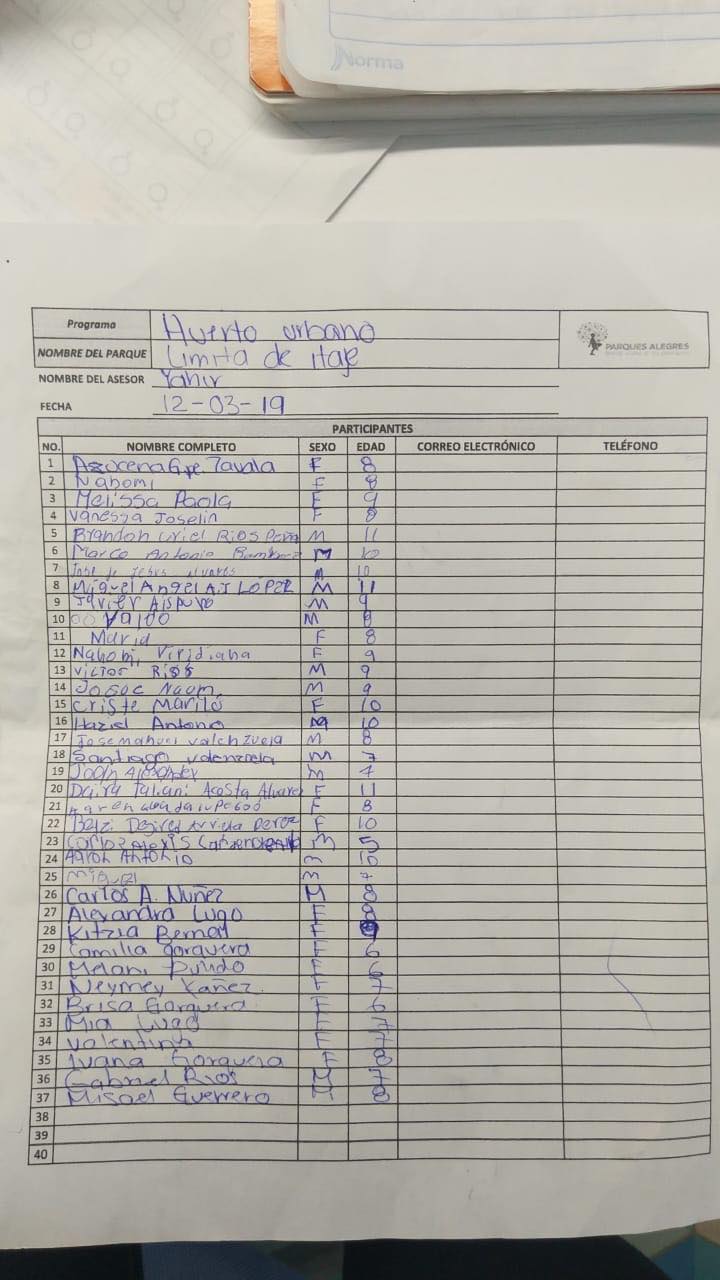 Norma
Programa Huerto urbano
PARQUES ALEGRES
NOMBRE DEL PARQUE Limita de itaje
NOMBRE DEL ASESOR Yahir
FECHA 12-03-19
PARTICIPANTES
NO. NOMBRE COMPLETO SEXO EDAD CORREO ELECTRÓNICO TELÉFONO
1 Azucena Gpe. Zavala F 8
2 Nahomi F 8
3 Melissa Paola F 9
4 Vanessa Joselin F 8
5 Brandon Uriel Rios M 11
6 Marco Antonio M 10
7 Jose de Jesus Alvares M 10
8 Miguel Angel LÓPEZ M 11
9 Javier Aispuro M 9
10 M 8
11 Maria F 8
12 Nahomi Viridiana F 9
13 Victor Rios M 9
14 Naomi M 9
15 Criste Marilo F 10
16 Haziel Antono M 10
17 Jose manuel valenzuela M 8
18 Santiago valenzuela M 7
19 M 7
20 Acosta Alvarez F 11
21 F 8
22 Arrieta Perez F 10
23 Carlos Alexis M 5
24 Aaron Antonio m 10
25 Miguel M 7
26 Carlos A. Nuñez M 8
27 Alexandra Lugo F 8
28 Kitzia Bernal F
29 Camilia Gorquera F 6
30 Melani Pulido F 6
31 Neymey Yañez F 7
32 Brisa Gorquera F 6
33 Mia Lugo F 7
34 Valentina F 7
35 Ivana Gorquera F 8
36 Gabriel Rios M 7
37 Misael Guerrero M 8
38
39
40